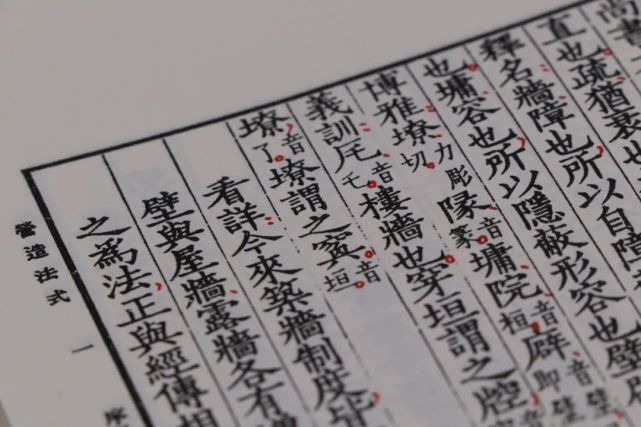 尚書
直也疏猶衰也
釋名牆障也所以自障
也墉容也所以隱蔽形容也壁
博雅㙩力彫切隊音篆墉院音桓廦音壁即壁
義訓厇音乇樓牆也穿垣謂之腔
㙩音了㙩謂之寏音垣
看詳今來築牆制度皆
壁與屋牆露牆各有增
之爲法正與經傳相
營造法式 一 序